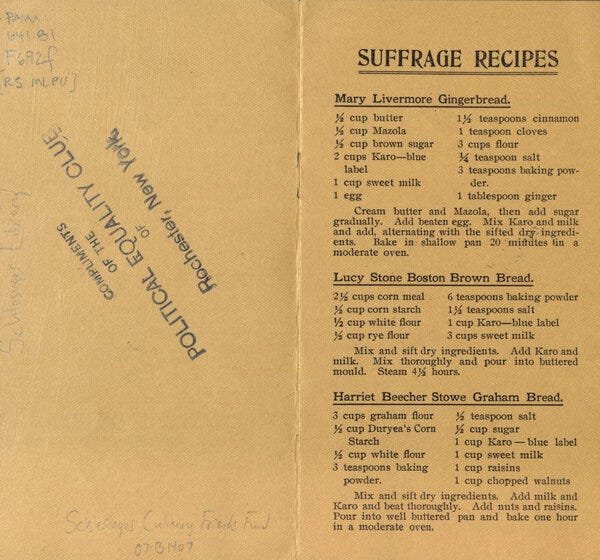 PAM
641.61
F692f
[RS MLPU]
COMPLIMENTS
OF THE
POLITICAL EQUALITY CLUB
OF
Rochester, New York
Schlesinger Library
Schlesinger Culinary Friends Fund
07-B1407
SUFFRAGE RECIPES
Mary Livermore Gingerbread.
½ cup butter
½ cup Mazola
½ cup brown sugar
2 cups Karo—blue
label
1 cup sweet milk
1 egg
1½ teaspoons cinnamon
1 teaspoon cloves
3 cups flour
¼ teaspoon salt
3 teaspoons baking pow-
der.
1 tablespoon ginger
Cream butter and Mazola, then add sugar
gradually. Add beaten egg. Mix Karo and milk
and add, alternating with the sifted dry ingredi-
ents. Bake in shallow pan 20 minutes in a
moderate oven.
Lucy Stone Boston Brown Bread.
2½ cups corn meal
½ cup corn starch
½ cup white flour
½ cup rye flour
6 teaspoons baking powder
1½ teaspoons salt
1 cup Karo—blue label
3 cups sweet milk
Mix and sift dry ingredients. Add Karo and
milk. Mix thoroughly and pour into buttered
mould. Steam 4½ hours.
Harriet Beecher Stowe Graham Bread.
3 cups graham flour
½ cup Duryea's Corn
Starch
½ cup white flour
3 teaspoons baking
powder.
½ teaspoon salt
½ cup sugar
1 cup Karo—blue label
1 cup sweet milk
1 cup raisins
1 cup chopped walnuts
Mix and sift dry ingredients. Add milk and
Karo and beat thoroughly. Add nuts and raisins.
Pour into well buttered pan and bake one hour
in a moderate oven.